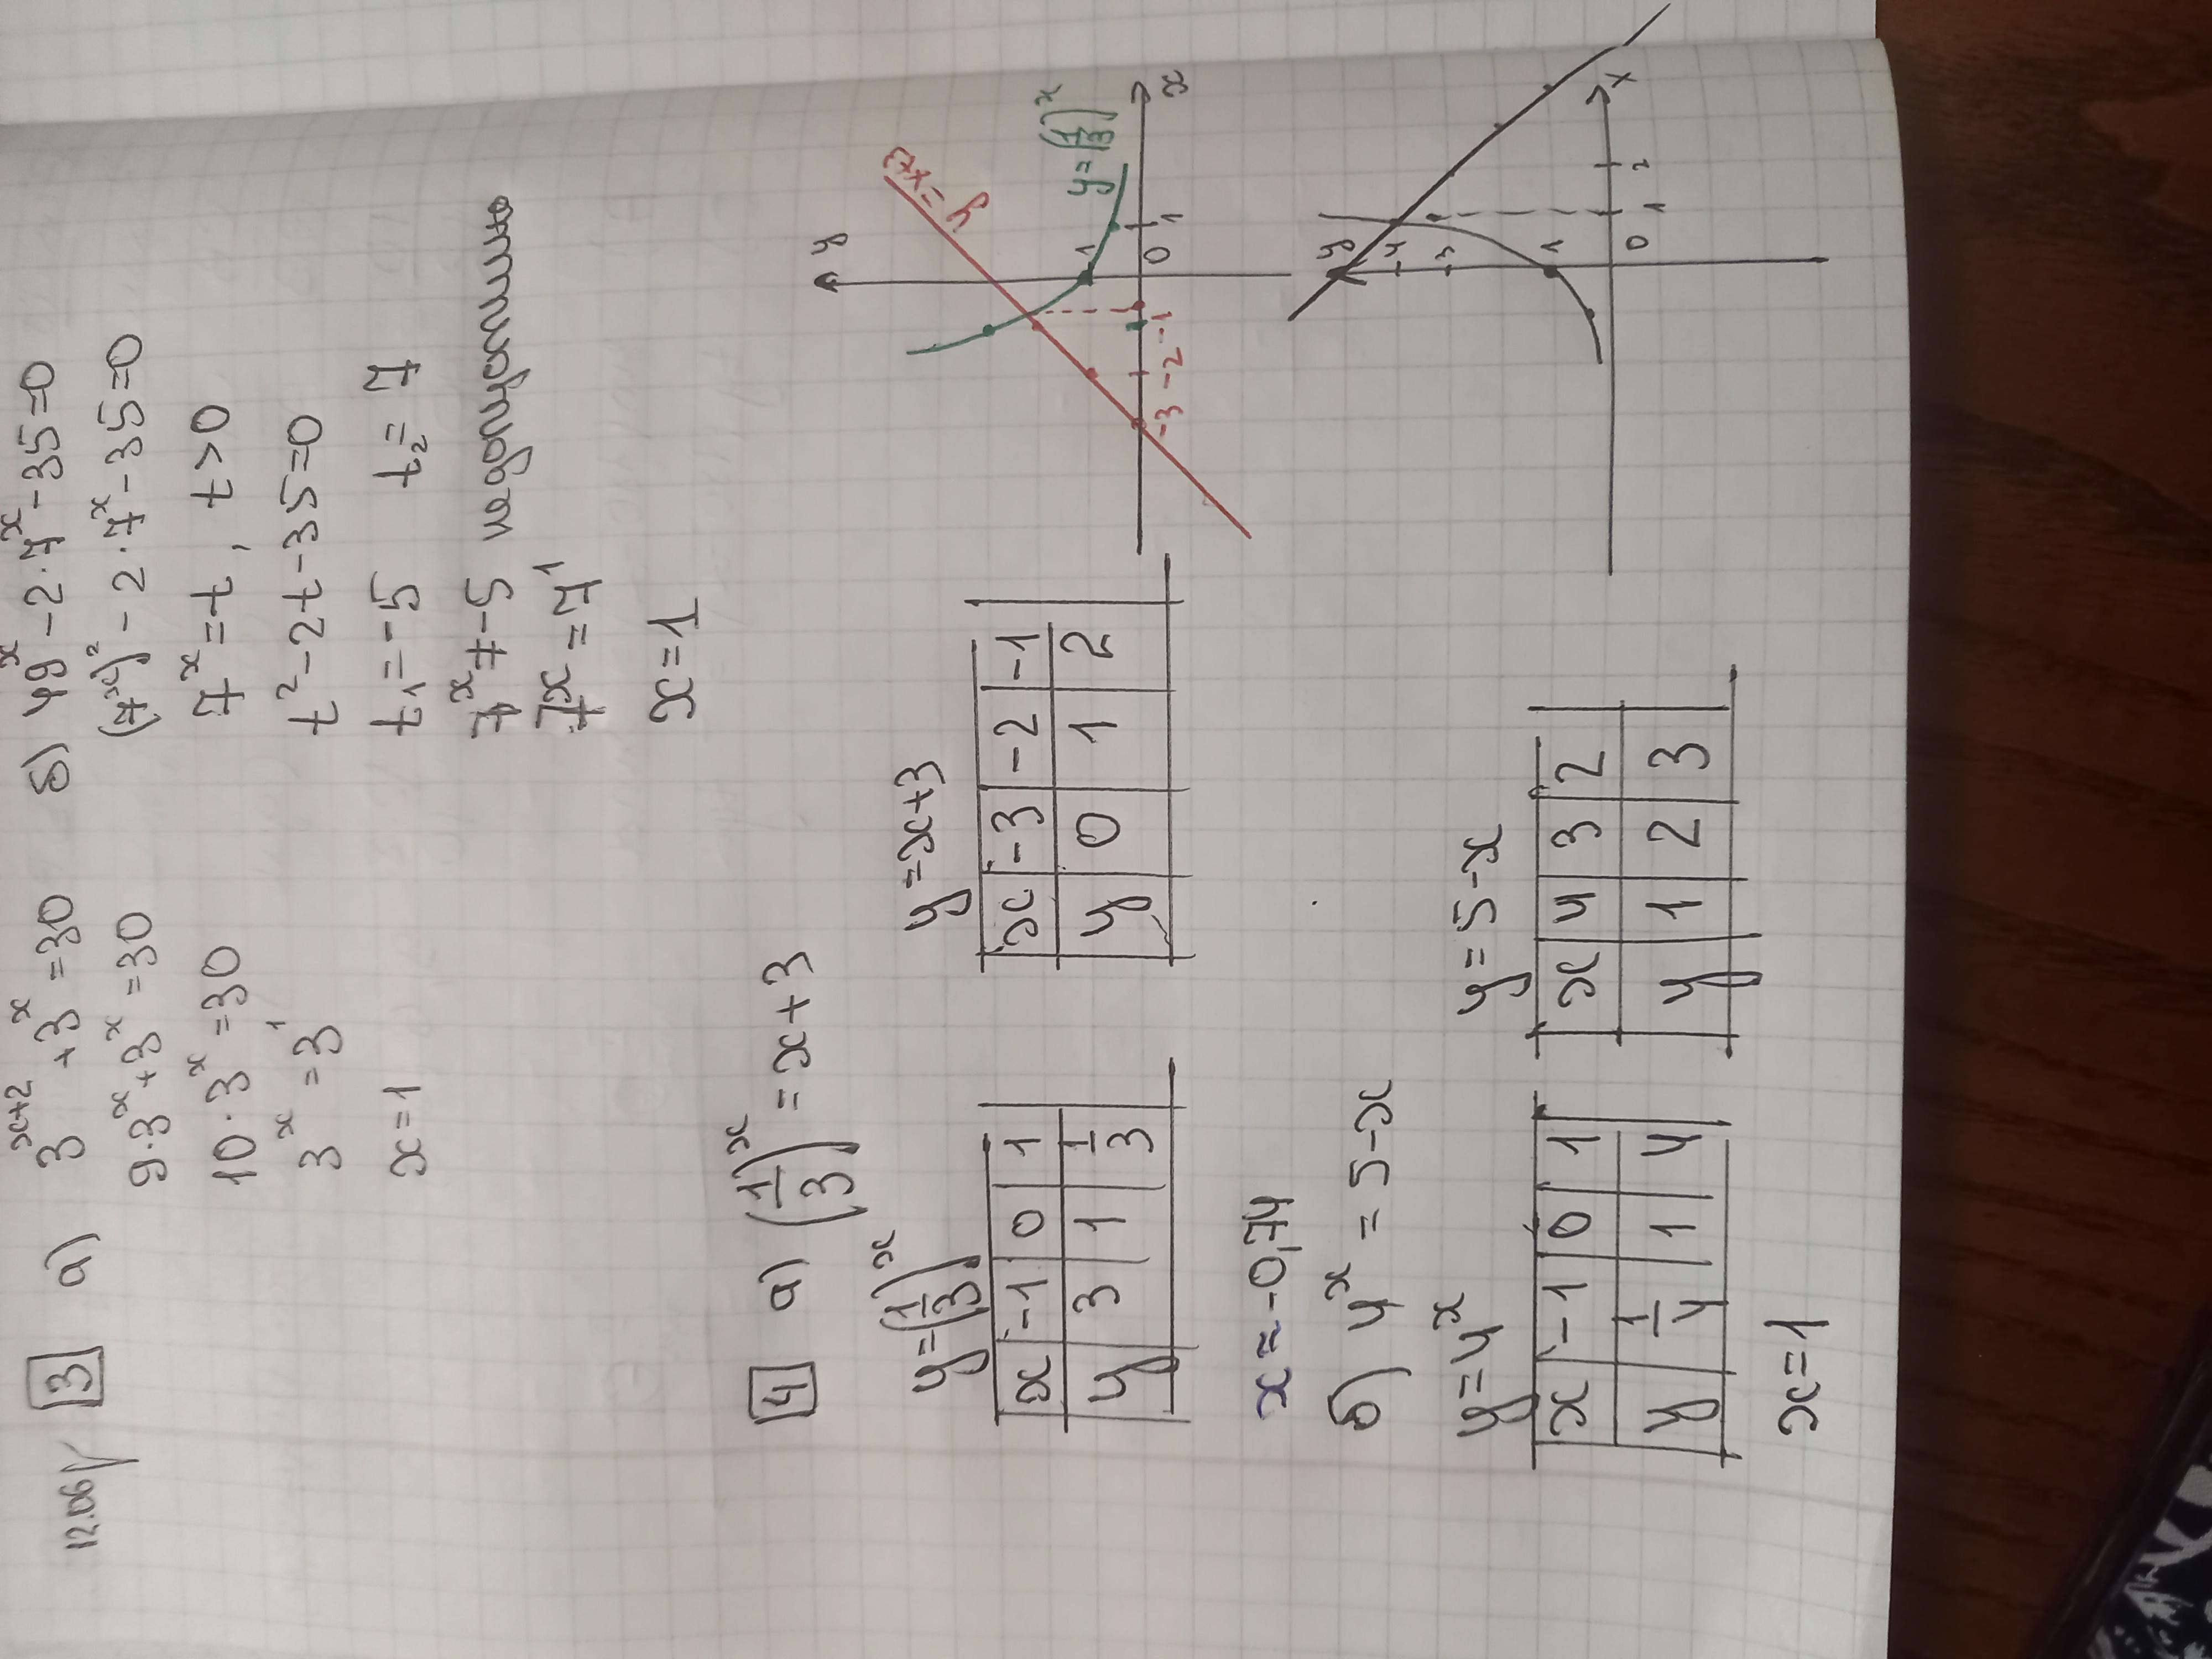 12.06
3 а) 3^(x+2) + 3^x = 30
9·3^x + 3^x = 30
10·3^x = 30
3^x = 3^1
x = 1
б) 49^x - 2·7^x - 35 = 0
(7^x)^2 - 2·7^x - 35 = 0
7^x = t, t > 0
t^2 - 2t - 35 = 0
t₁ = -5 t₂ = 7
7^x ≠ -5 недопустимо
7^x = 7^1
x = 1
4 а) (1/3)^x = x+3
y = (1/3)^x
x -1 0 1
y 3 1 1/3
y = x+3
x -3 -2 -1
y 0 1 2
y
y = x+3
y = (1/3)^x
1
-3 -2 -1 0 1 x
x ≈ -0,74
б) 4^x = 5-x
y = 4^x
x -1 0 1
y 1/4 1 4
y = 5-x
x 4 3 2
y 1 2 3
y
4
3
1
0 1 2 x
x = 1